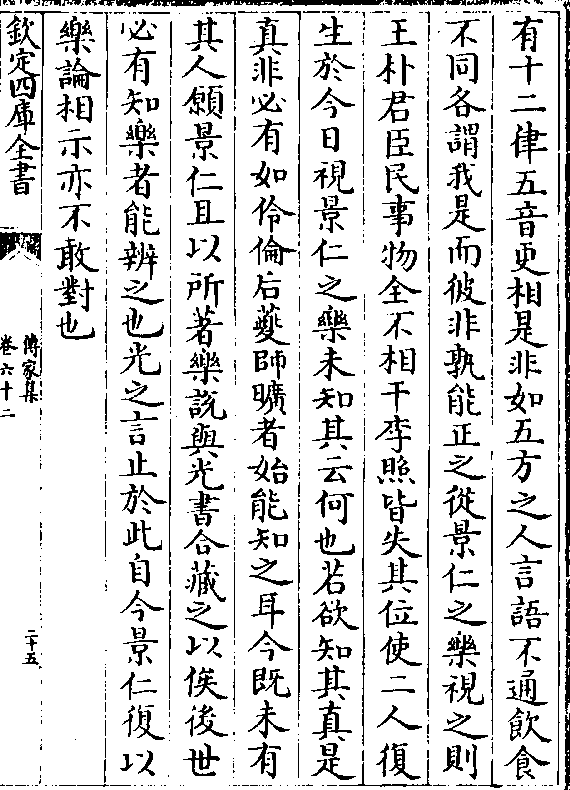 有十二律五音更相是非如五方之人言語不通飲食
不同各謂我是而彼非孰能正之從景仁之樂視之則
王朴君臣民事物全不相干李照皆失其位使二人復
生於今日視景仁之樂未知其云何也若欲知其真是
真非必有如伶倫后夔師曠者始能知之耳今既未有
其人願景仁且以所著樂說與光書合藏之以俟後世
必有知樂者能辨之也光之言止於此自今景仁復以
樂論相示亦不敢對也
欽定四庫全書
傳家集
卷六十二
二十五